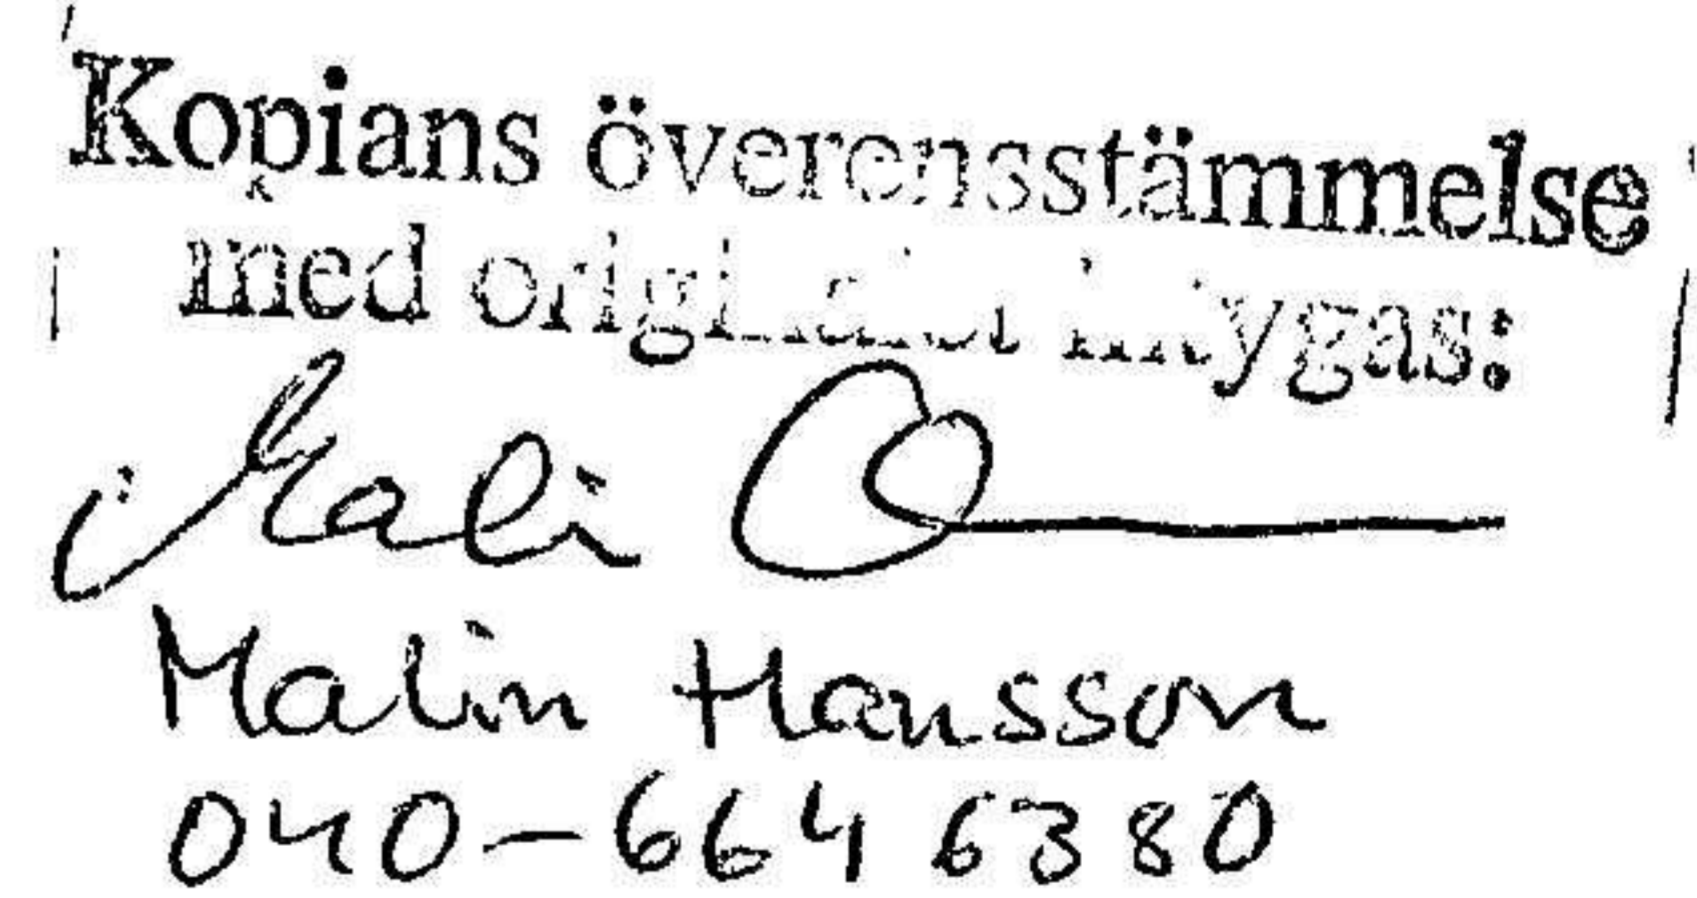 Kopians överensstämmelse
med originalet intygas:
Malin
Malin Hansson
040-664 6380